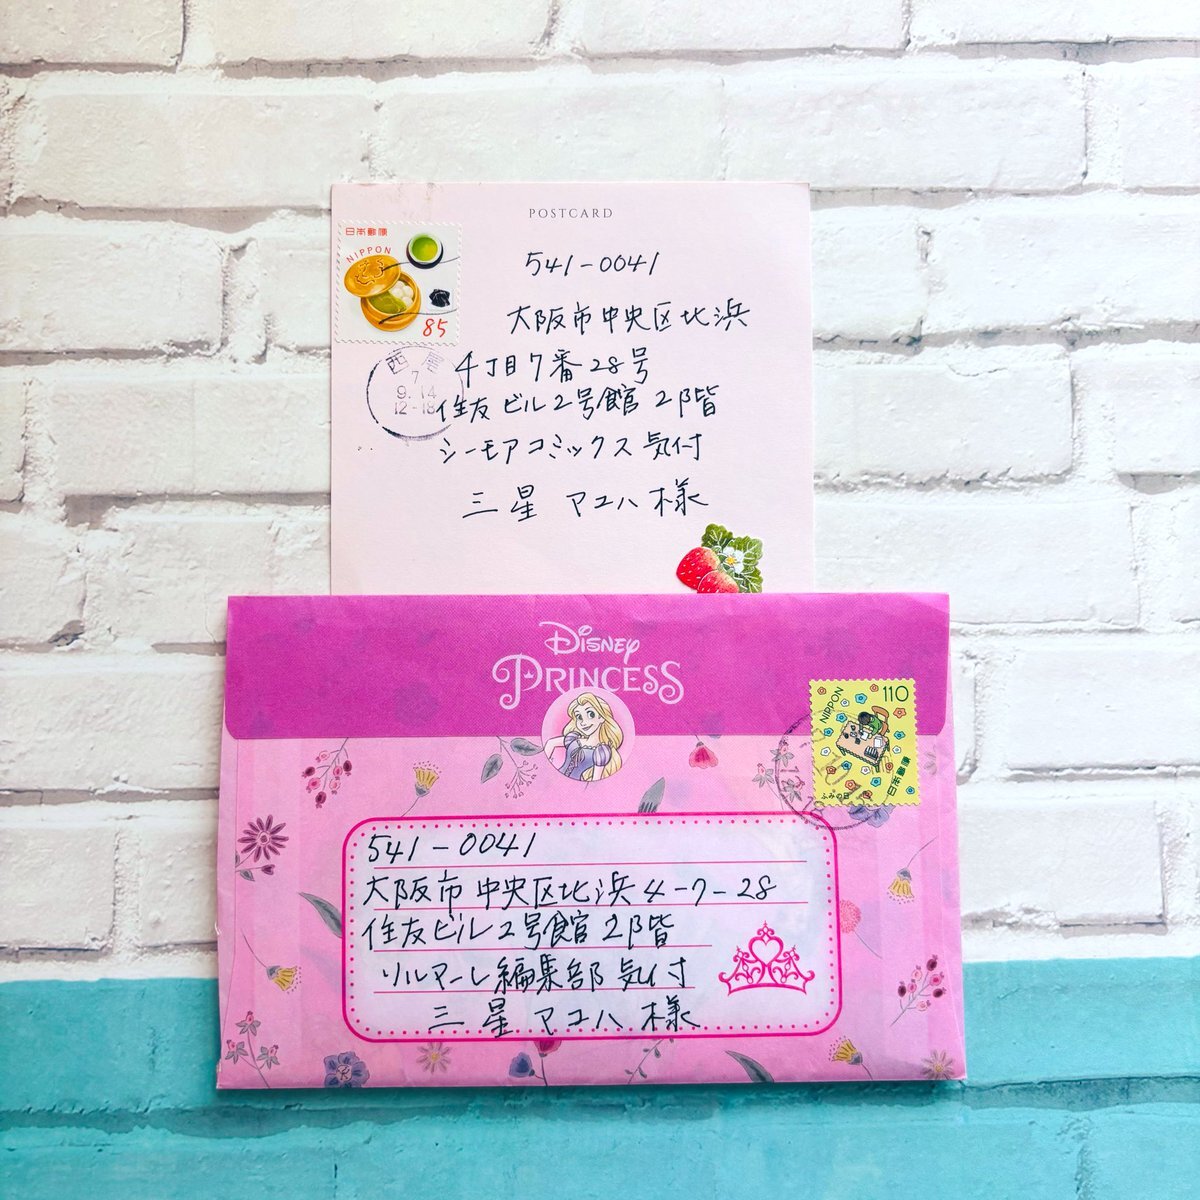 POSTCARD
日本郵便
NIPPON
85
西尾
7
9.14
12-18
541-0041
大阪市中央区北浜
4丁目7番28号
住友ビル2号館2階
シーモアコミックス気付
三星 マユハ様
Disney
PRINCESS
110
NIPPON
日本郵便
ふみの日
541-0041
大阪市中央区北浜4-7-28
住友ビル2号館2階
ソルマーレ編集部気付
三星 マユハ様